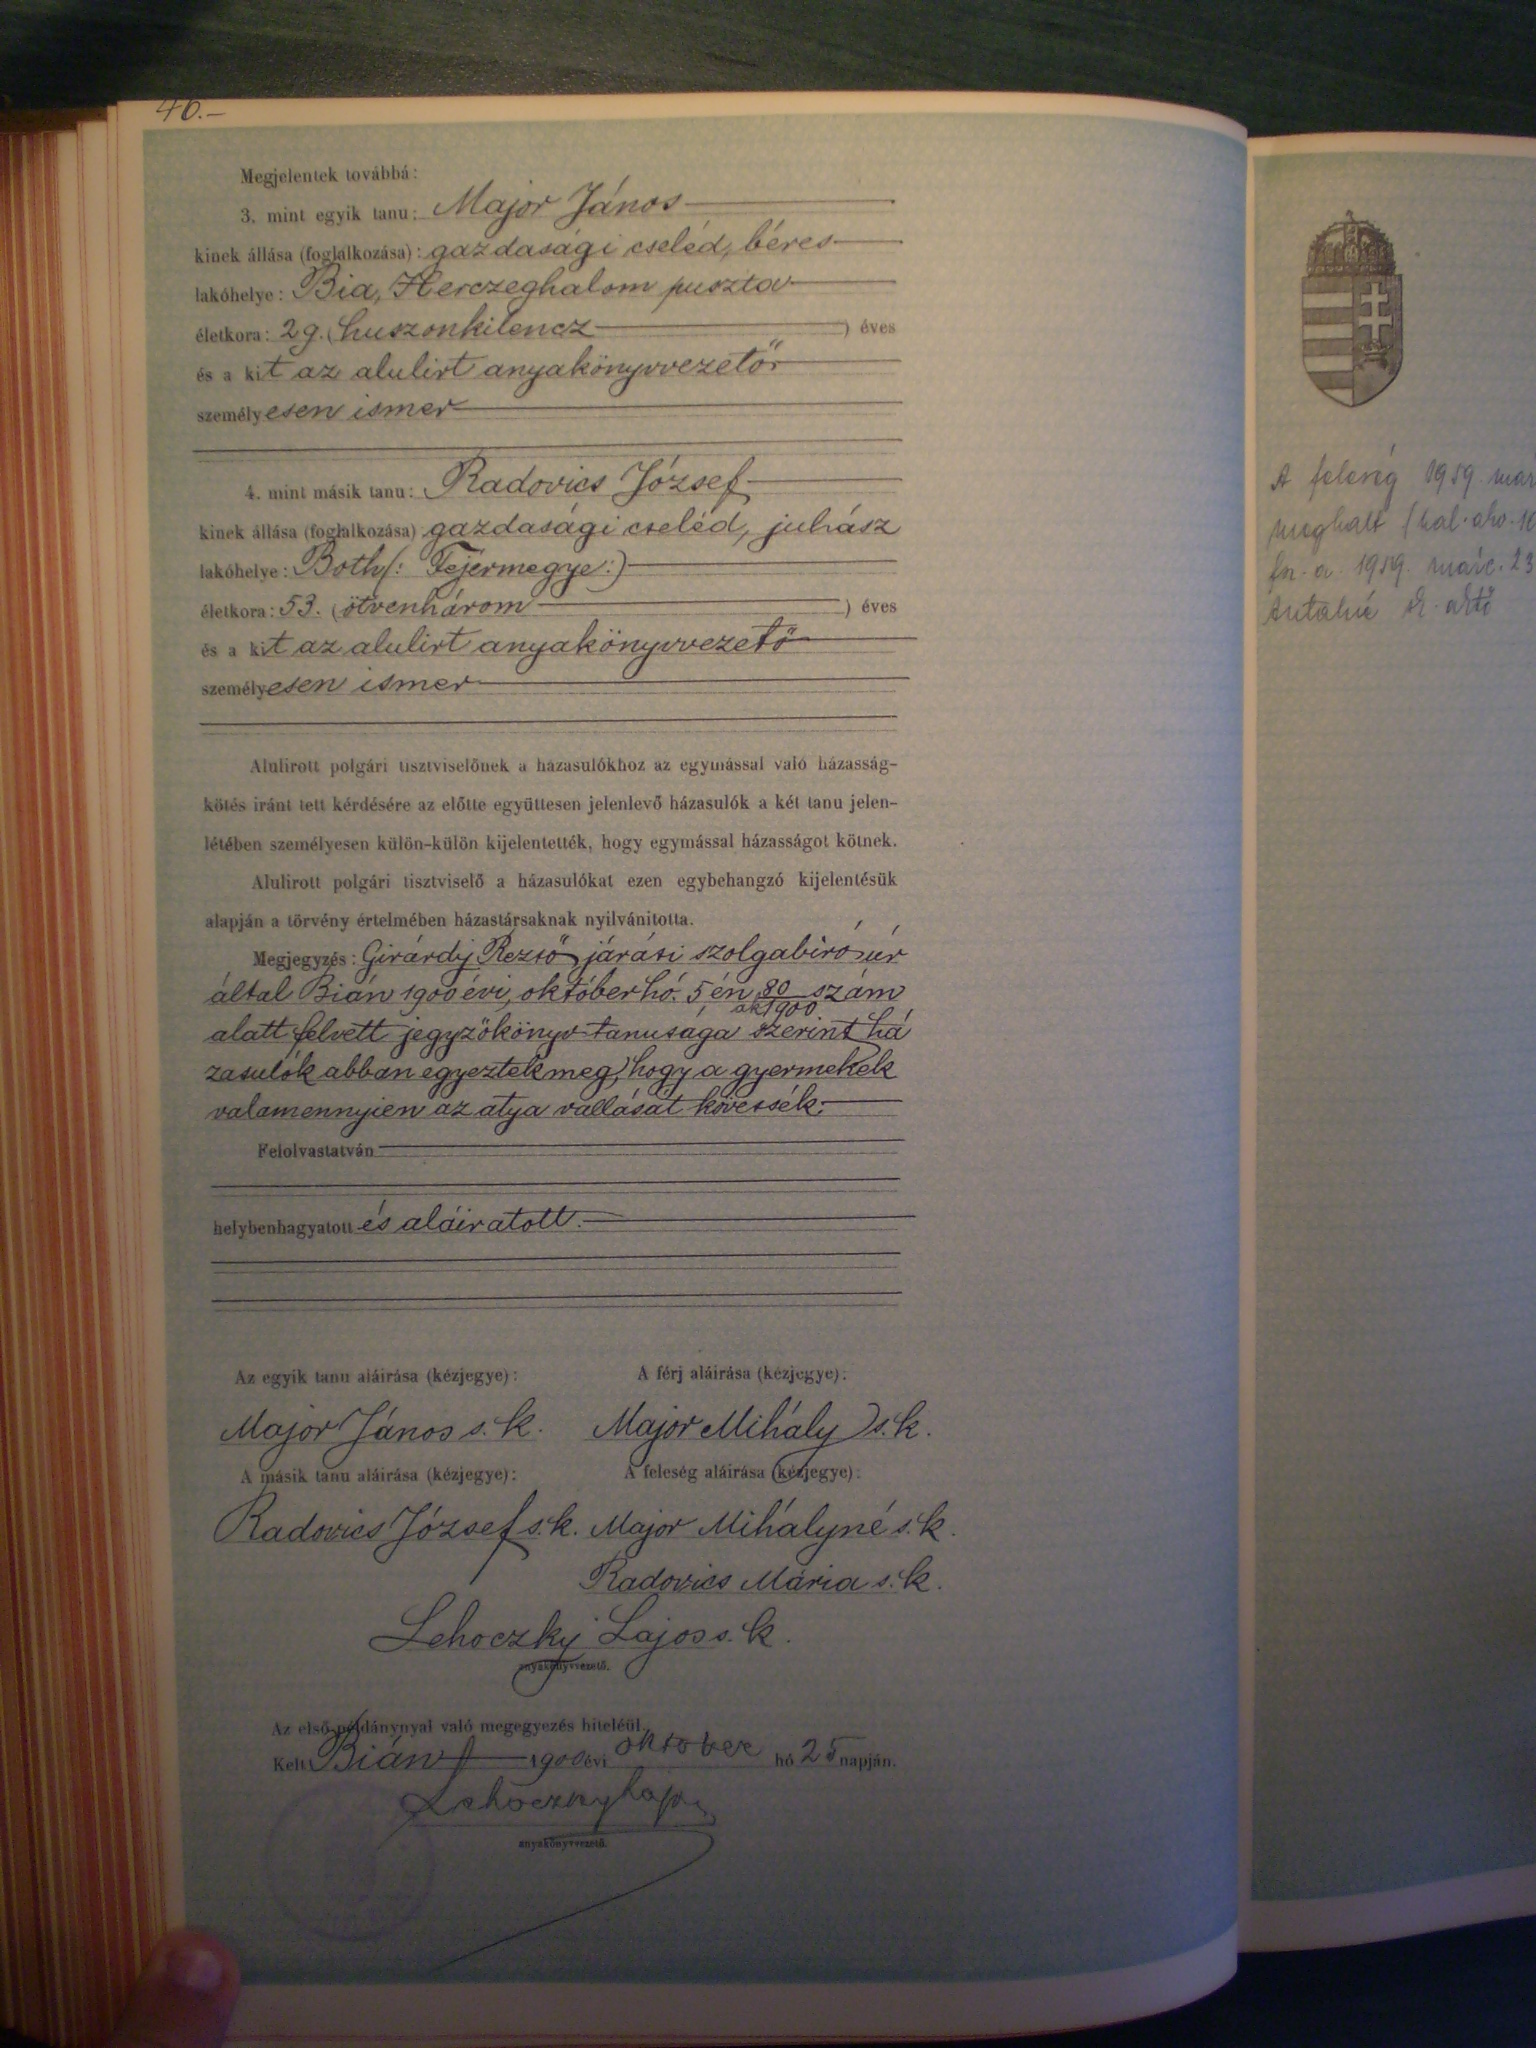 46.-
Megjelentek továbbá:
3. mint egyik tanu: Major János
kinek állása (foglalkozása): gazdasági cseléd, béres
lakóhelye: Bia, Herczeghalom puszta
életkora: 29. (huszonkilencz) éves
és a kit az alulirt anyakönyvvezető
személyesen ismer
4. mint másik tanu: Radovics József
kinek állása (foglalkozása) gazdasági cseléd, juhász
lakóhelye: Both (: Fejérmegye:)
életkora: 53. (ötvenhárom) éves
és a kit az alulirt anyakönyvvezető
személyesen ismer
Alulirott polgári tisztviselőnek a házasulókhoz az egymással való házasság-
kötés iránt tett kérdésére az előtte együttesen jelenlevő házasulók a két tanu jelen-
létében személyesen külön-külön kijelentették, hogy egymással házasságot kötnek.
Alulirott polgári tisztviselő a házasulókat ezen egybehangzó kijelentésük
alapján a törvény értelmében házastársaknak nyilvánitotta.
Megjegyzés: Girárdy Rezső járási szolgabiró úr
által Bián 1900 évi, október hó. 5 én 80/ak1900 szám
alatt felvett jegyzőkönyv tanusága szerint há
zasulók abban egyeztek meg, hogy a gyermekek
valamennyien az atya vallását kövessék.
Felolvastatván
helybenhagyatott és aláiratott.
Az egyik tanu aláirása (kézjegye): A férj aláirása (kézjegye):
Major János s.k. Major Mihály s.k.
A másik tanu aláirása (kézjegye): A feleség aláirása (kézjegye):
Radovics József s.k. Major Mihályné s.k.
Radovics Mária s.k.
Lehoczky Lajos s.k.
anyakönyvvezető.
Az első példánynyal való megegyezés hiteléül.
Kelt Bián 1900 évi oktober hó 25 napján.
Lehoczky Lajos
anyakönyvvezető.
A feleség 1959. már
meghalt (hal. akv. 10
fn. a. 1959. márc. 23